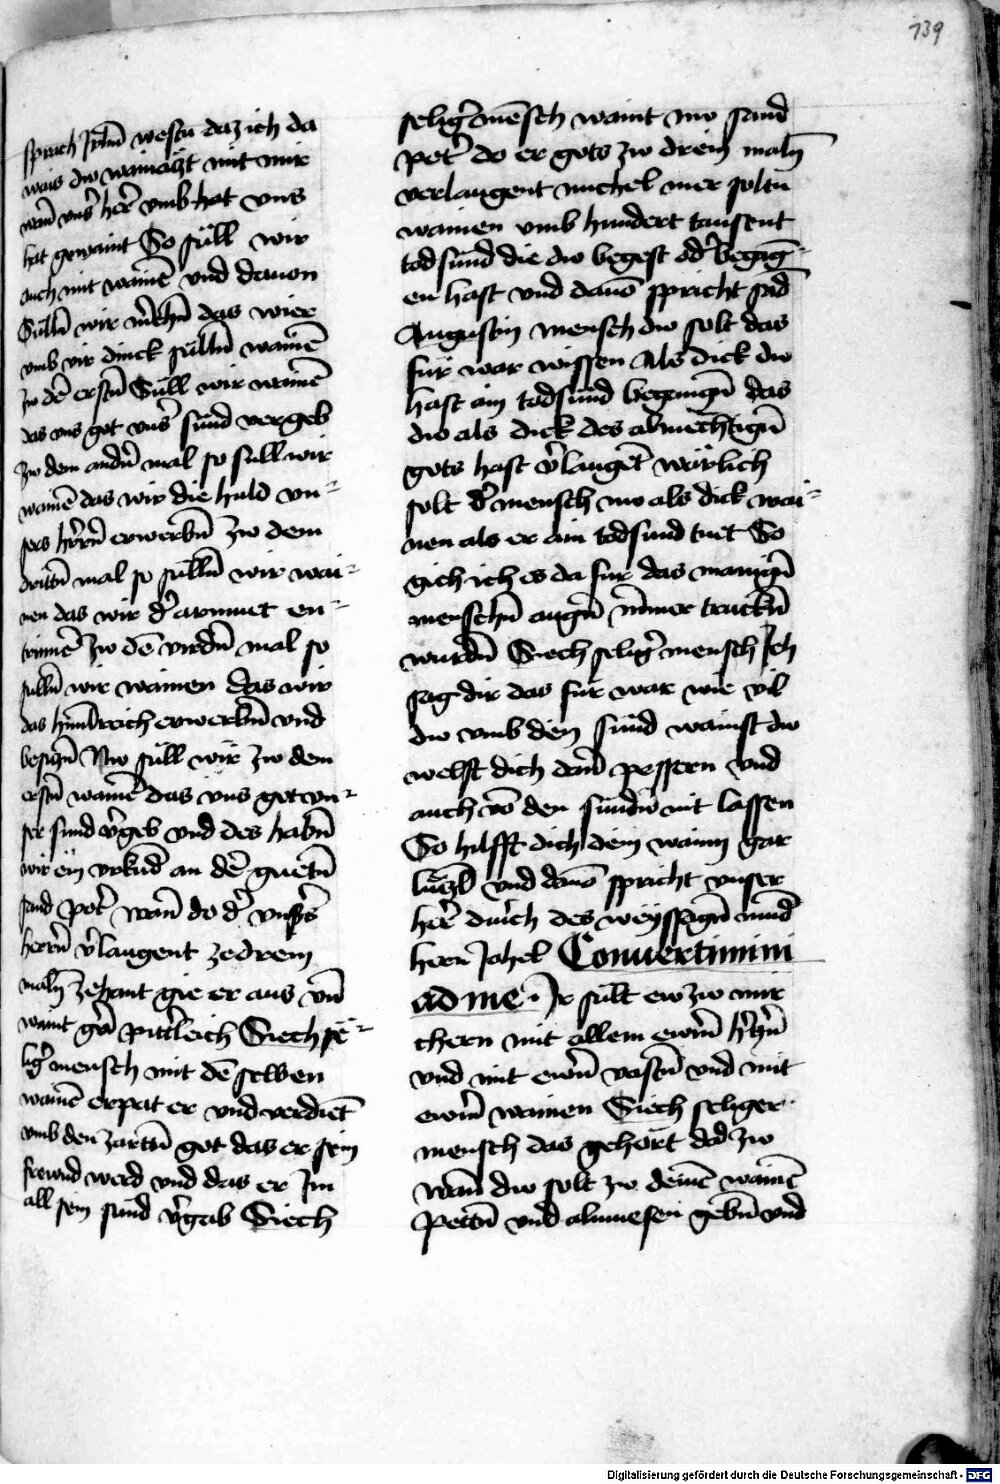 139
sprach Jrłm westu daz ich da
wais du wainäzt mit mir
wan̄ vns̄ her̄ vmb hat vns
hat gewaint So süll wir
auch mit wainē und dauon
Sülln̄ wir mer̄khn̄ das wier
vmb vir dinck sülln̄ wainē
zu dē erstn̄ Süll wir wainē
das vns got vnser̄ sünd vergeb
zw dem andn̄ mal so sull wir
wainē das wir die huld vn=
sers hr̄rn̄ erwerbn̄ zw dem
drittn̄ mal so sülln̄ wir wai=
nen das wir d̄ armuet en=
trinnē zw dē virdn̄ mal so
sulln̄ wir wainen das wir
das himl̄reich erwerbn̄ vnd
besiczn̄ Nw süll wir zw dem
erstn̄ wainē das vns got vn=
ser sund v̄geb vnd des habn̄
wir ein vrkūd an dē guetn̄
sand pet̄ wan̄ do d̄ vnsers
herrn̄ v̄laugent ze drein
maln̄ zehant gie er aus vn̄
waint gar̄ pittl̄eich Siech sē=
liḡ mensch mit dē selben
wainē erpat er vnd verdiēt
vmb den zartn̄ got das er sein
frewnd werd vnd das er Jm
all sein sünd v̄gab Siech
seliḡ mēsch waint nw sand
pet̄ do er gots zw drein maln̄
verlaugent michel mer soltu
wainen vmb hundert tausent
tod sünd die du begest od̄ begāg=
en hast vnd dauō spricht sād
Augustin mensch du solt das
für war wissen Als dick du
hast ain todsünd begangn̄ das
du als dick des almechtign̄
gots hast v̄laugēt wärlich
solt d̄ mensch nw als dick wai=
nen als er ain todsund tuet So
gich ich es da fur das manign̄
menschn̄ augn̄ nīmer truckn̄
wurdn̄ Siech seliḡ mensch Ich
sag dir das fur war wie vil
du vmb den sünd wainst du
welst dich dan̄ pessern vnd
auch vō den sündn̄ nit lassen
So hilfft dich dein wainn gar
lüczl̄ vnd dauō spricht vnser
her̄ durch des weyssagn̄ mund̄
hern Johel Conuertimini
ad me · Ir sült ew zw mir
chern mit allem ewrn̄ h̄czn̄
vnd mit ewrn̄ vastn̄ vnd mit
ewrm̄ wainen Siech seliger
mensch das gehört dad zw
wan̄ du solt zw deinē wainē
Pettn̄ vnd almuesen gebn̄ vnd
Digitalisierung gefördert durch die Deutsche Forschungsgemeinschaft - DFG